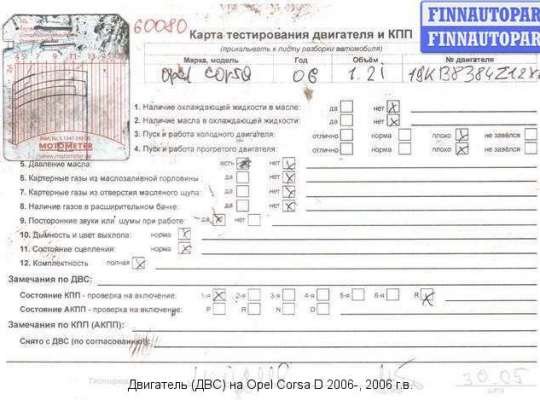 60080
Карта тестирования двигателя и КПП
(прикалывать к листу разборки автомобиля)
FINNAUTOPAR
FINNAUTOPAR
Марка, модель Год Объём № двигателя
Opel Corsa 06 1.2i
MOTOMETER
1. Наличие охлаждающей жидкости в масле: да нет
2. Наличие масла в охлаждающей жидкости: да нет
3. Пуск и работа холодного двигателя: отлично норма плохо не завёлся
4. Пуск и работа прогретого двигателя: отлично норма плохо не завёлся
5. Давление масла: есть нет
6. Картерные газы из маслозаливной горловины да нет
7. Картерные газы из отверстия масляного щупа: да нет
8. Наличие газов в расширительном бачке: да нет
9. Посторонние звуки или шумы при работе: да нет
10. Дымность и цвет выхлопа: норма
11. Состояние сцепления: норма
12. Комплектность полная
Замечания по ДВС:
Состояние КПП - проверка на включение: 1-я 2-я 3-я 4-я 5-я 6-я R
Состояние АКПП - проверка на включение: P R N D
Замечания по КПП (АКПП):
Снято с ДВС (по согласованию):
30.05
Двигатель (ДВС) на Opel Corsa D 2006-, 2006 г.в.